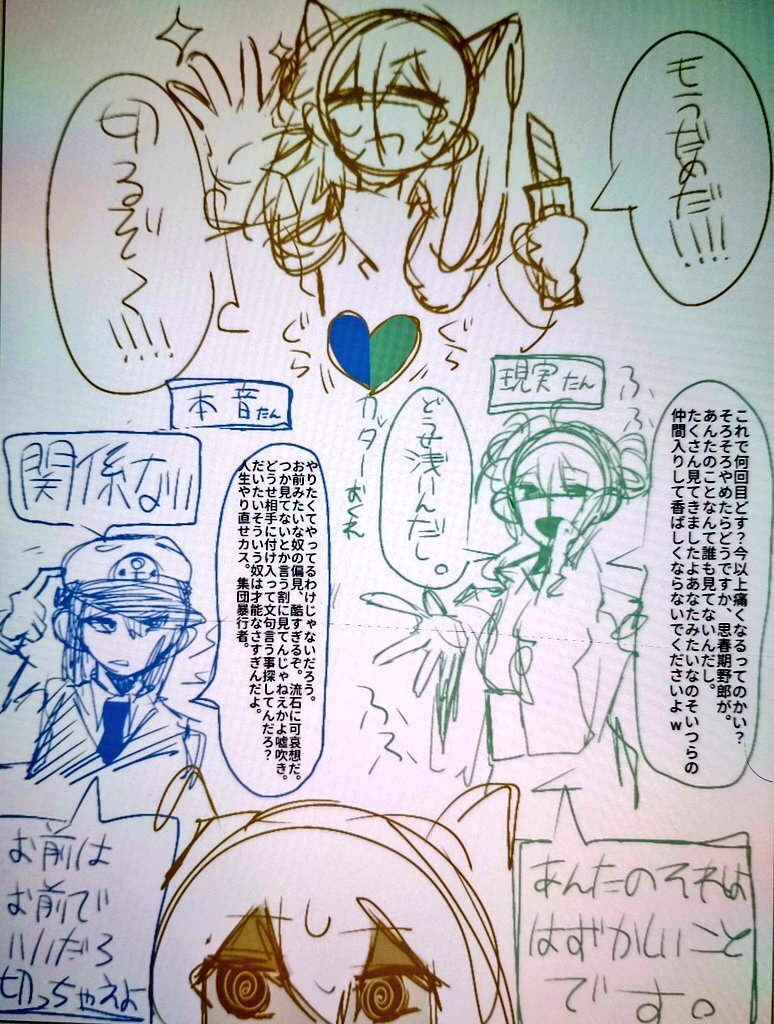 もうだめだ!!!!
切るぞ〜!!!!
ぐら
ぐら
カッターおくれ
現実たん
ふ、ふ、
これで何回目どす？今以上痛くなるってのかい？
そろそろやめたらどうですか、思春期野郎が。
あんたのことなんて誰も見てないんだし。
たくさん見てきましたよあなたみたいなのそいつらの
仲間入りして香ばしくならないでくださいよｗ
どうせ浅いんだし。
ふ、ふ、
本音たん
関係ない!
やりたくてやってるわけじゃないだろう。
お前みたいな奴の偏見、酷すぎるぞ。流石に可哀想だ。
つか見てないとか言う割に見てんじゃねえかよ嘘吹き。
どうせ相手に付け入って文句言う事探してんだろ？
だいたいそういう奴は才能なさすぎんだよ。
人生やり直せカス。集団暴行者。
あんたのそれは
はずかしいこと
です。
お前は
お前で
いいだろ
切っちゃえよ